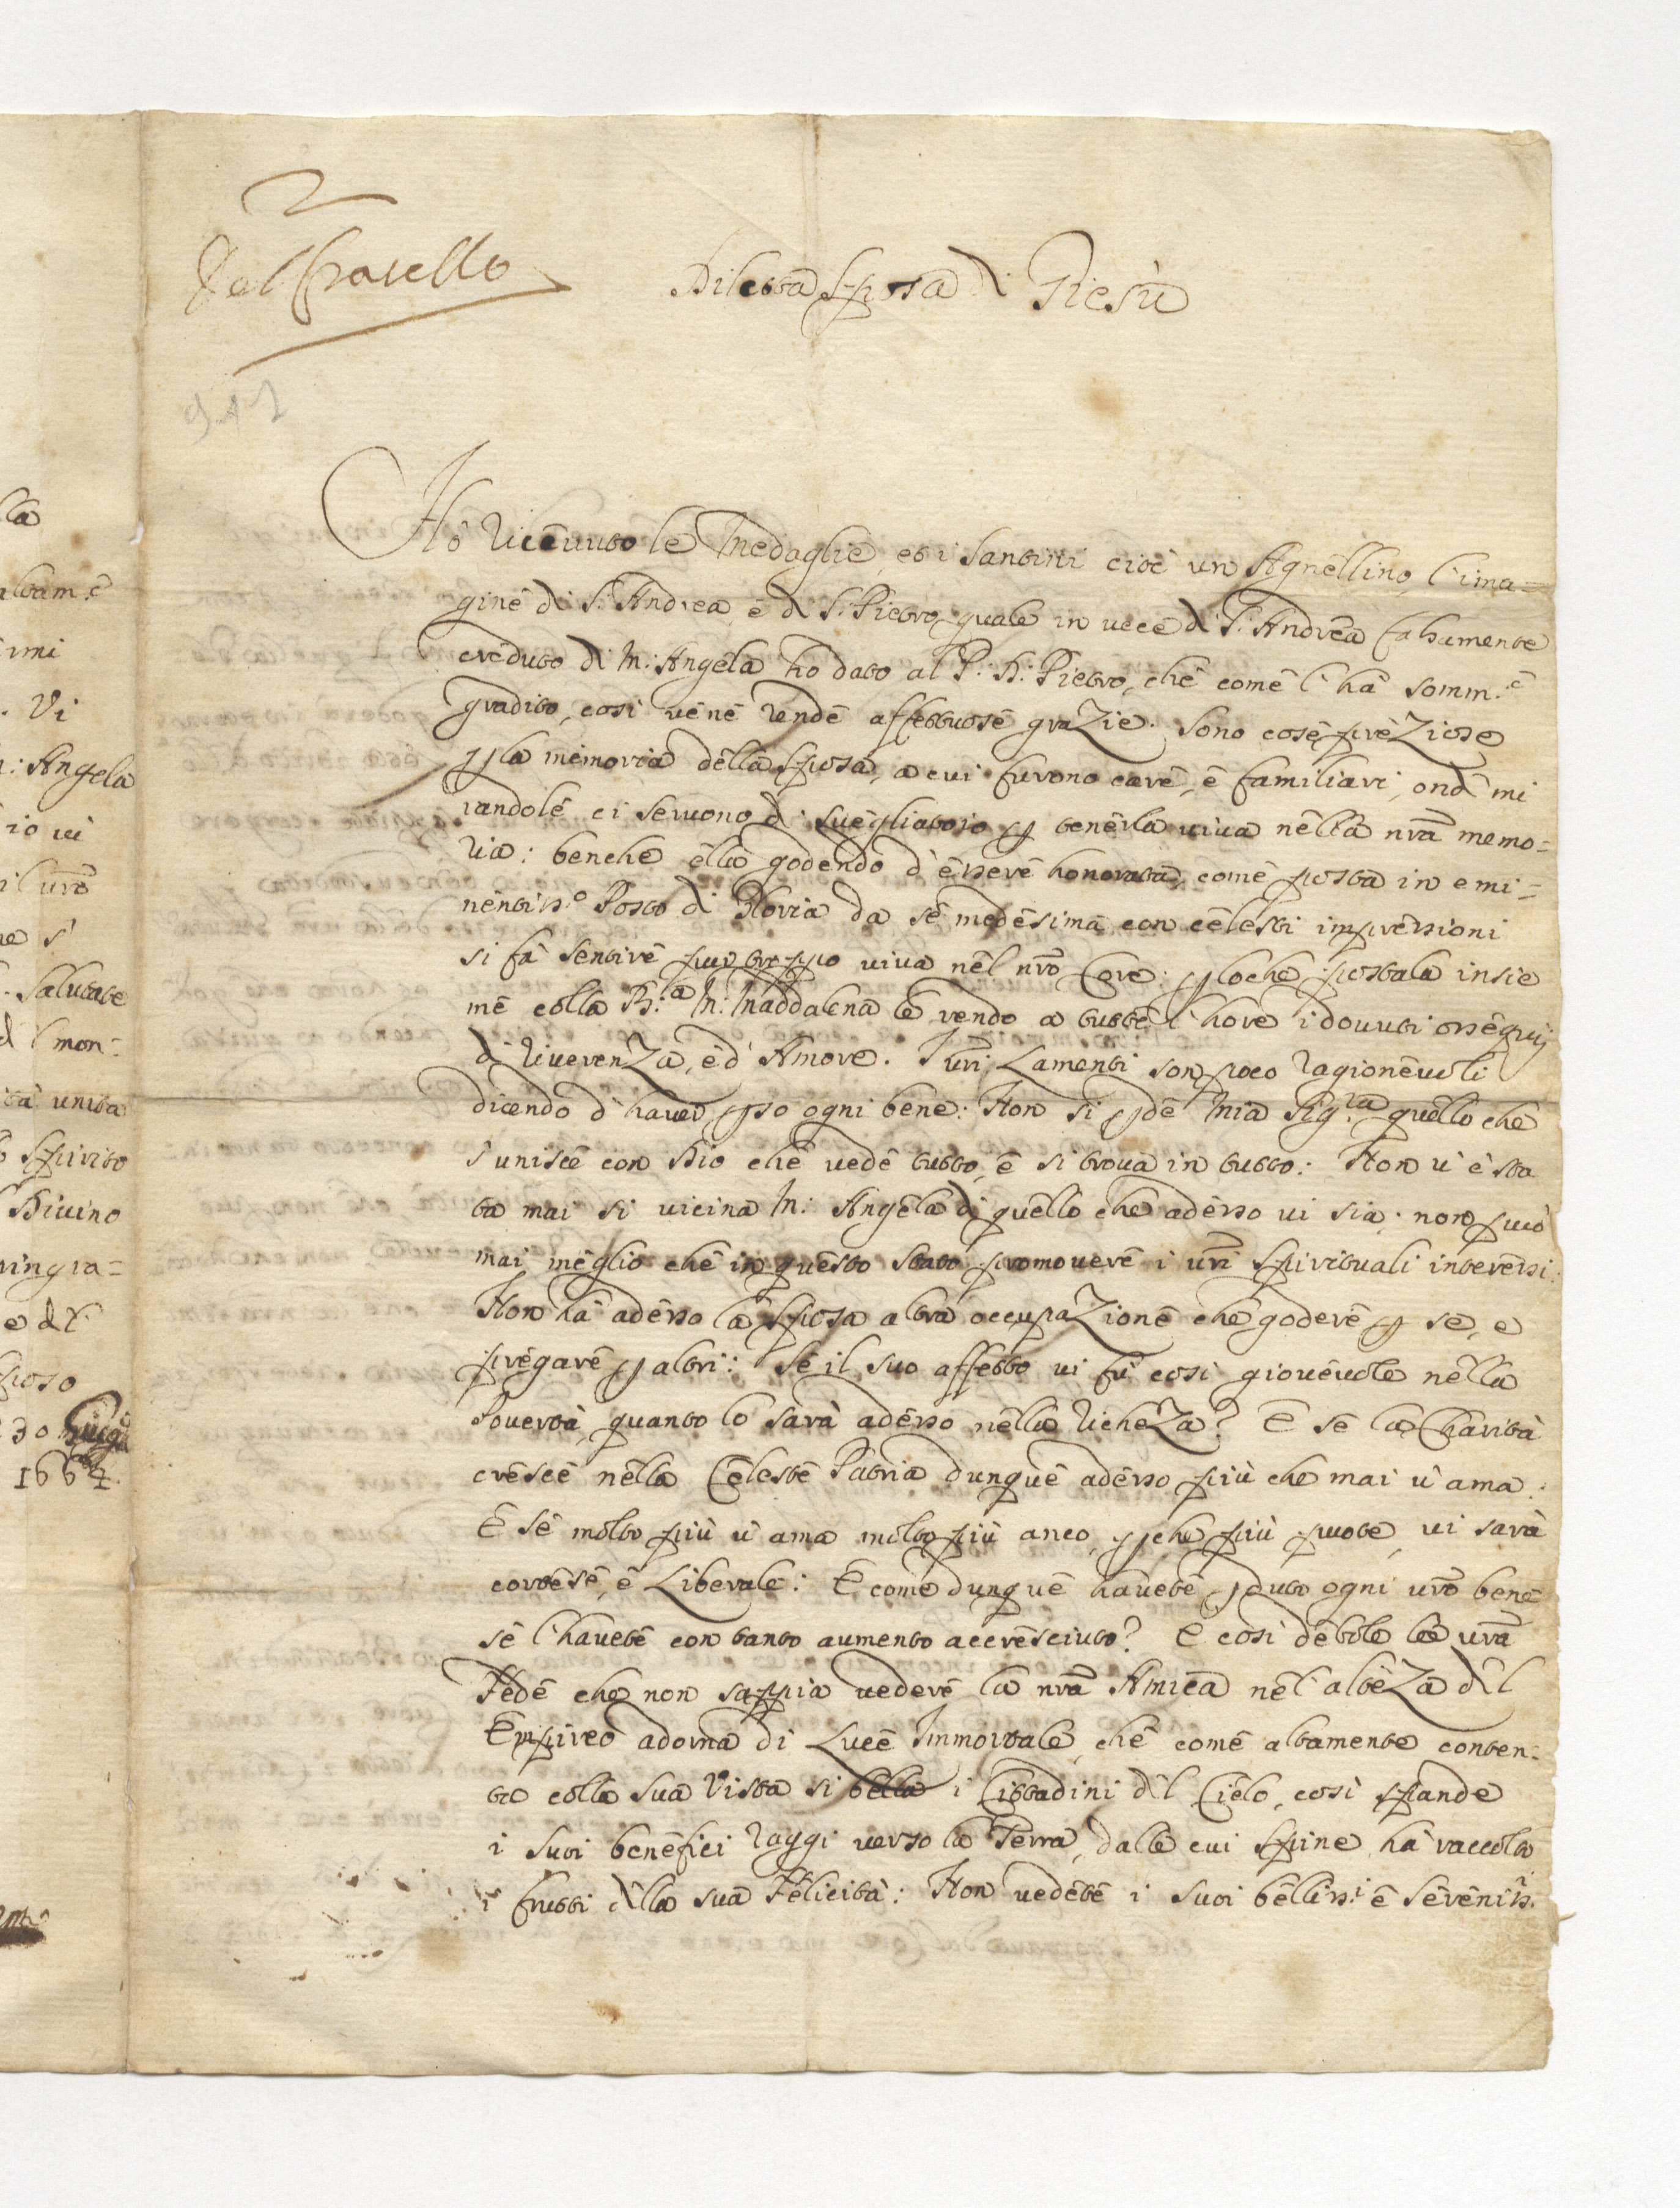 lla
altam.e
imi
. Vi
: Angela
rio vi
il vrõ
ne s'
. salutate
d l mon:
ità unita
o Spirito
Divino
ringra=
e dl
poso
30
1664.
Del fratello
Diletta Sposa di Giesù
Hò riceuuto le Medaglie, et i santini cioè un Agnellino, l'ima=
gine di S. Andrea, e di S. Pietro, quale in uece di S. Andrea falsamente
creduto di M: Angela ho dato al P: D: Pietro, che come l'hà somm.e
gradito, così uene rende affettuose grazie. Sono cose preziose
p la memoria della Sposa, a cui furono care, e familiari, onde mi
randole ci seruono di suegliatoio p tenerla uiua nella nrã memo=
ria: benche ella godendo d'essere honorata, come posta in emi=
nentiss.o Posto di Gloria da se medesima con celesti impressioni
si fà sentire pur troppo uiua nel nrõ Core: p loche postala insie
me colla B.a M: Maddalena le rendo a tutte l'hore i douuti ossequij
di riuerenza, e d'Amore. I vrĩ Lamenti son poco ragioneuoli
dicendo d'hauer pso ogni bene: Non si pde Mia Sig.ra quello che
s'unisce con Dio che uede tutto, e si troua in tutto: Non u'è sta
ta mai si uicina M: Angela di quello che adesso ui sia: non può
mai meglio che in questo stato promouere i vrĩ Spirituali interessi:
Non hà adesso la Sposa altra occupazione che godere p se, e
pregare p altri: Se il suo affetto ui fù così gioueuole nella
Pouertà, quanto lo sarà adesso nella richeza? E se la Charità
cresce nella Celeste Patria dunque adesso più che mai u'ama:
E se molto più u'ama molto più anco, p che più puote, ui sarà
cortese, e Liberale: E come dunque hauete pduto ogni vrõ bene
se l'hauete con tanto aumento accresciuto? E così debole la vrã
Fede che non sappia uedere la nrã Amica nel'alteza dl
Empireo adorna di Luce Immortale, che come altamente conten=
ta colla sua Vista si bella i Cittadini dl Cielo, così spande
i suoi benefici raggi uerso la Terra, dalle cui spine hà raccolto
i frutti dlla sua Felicità: Non uedete i suoi belliss.i e sereniss.i